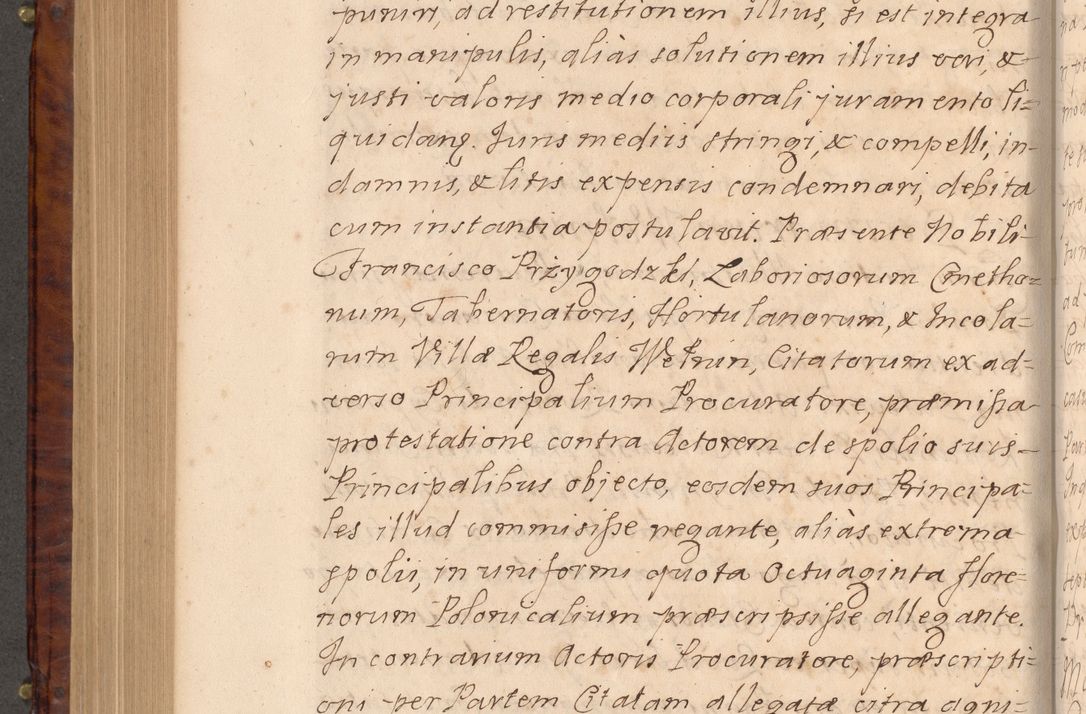 puniri, ad restitutionem illius, si est integra
in manipulis, aliàs solutionem illius veri, &
justi valoris medio corporali juramento li=
quidanq. Juris mediis stringi, & compelli, in
damnis, & litis expensis condemnari, debita
cum instantia postulavit. Præsente Nobili
Francisco Przygodzki, Laboriosorum Cmetho=
num, Tabernatoris, Hortulanorum, & Incola=
rum Villæ Regalis Wełnin, Citatorum ex ad=
verso Principalium Procuratore, præmissa
protestatione contra Actorem de spolio suis=
Principalibus objecto, eosdem suos Principa=
les illud commisisse negante, aliàs extrema
spolii, in uniformi quota Octuaginta flore=
norum Polonicalium præscripsisse allegante.
In contrarium Actoris Procuratore, præscripti=
oni per Partem Citatam allegatæ citra agni=